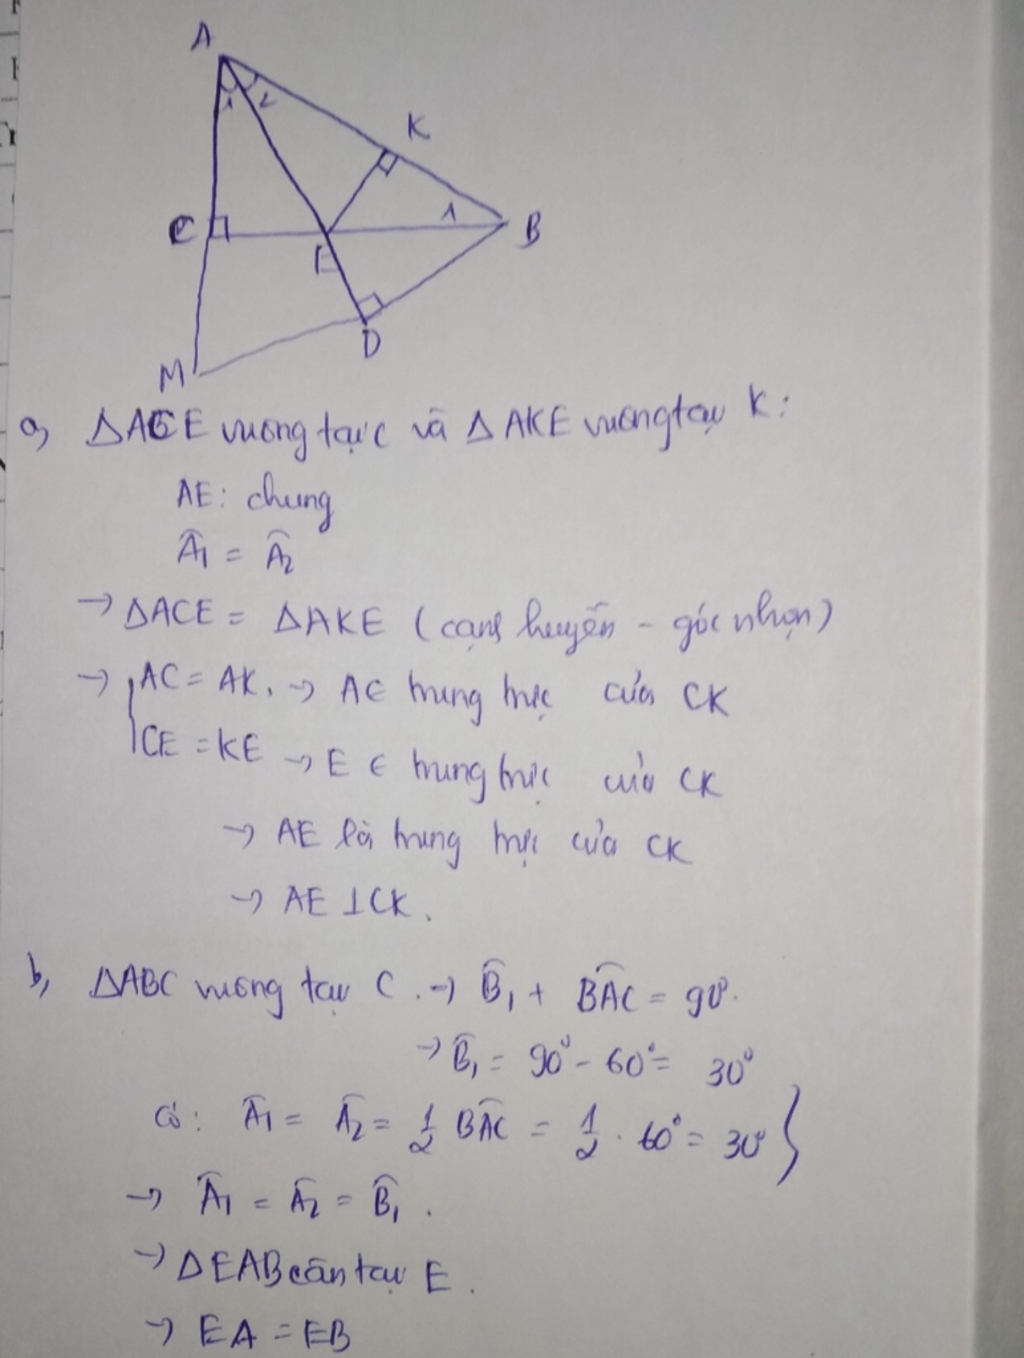 A
1 2
K
C
1
B
E
D
M
a, ΔACE vuông tại C và ΔAKE vuông tại K:
AE: chung
Â1 = Â2
→ ΔACE = ΔAKE (cạnh huyền - góc nhọn)
→ AC = AK. → A ∈ trung trực của CK
CE = KE → E ∈ trung trực của CK
→ AE là trung trực của CK
→ AE ⊥ CK.
b, ΔABC vuông tại C. → B̂1 + BÂC = 90°.
→ B̂1 = 90° - 60° = 30°
Có: Â1 = Â2 = 1/2 BÂC = 1/2 . 60° = 30° }
→ Â1 = Â2 = B̂1.
→ ΔEAB cân tại E.
→ EA = EB